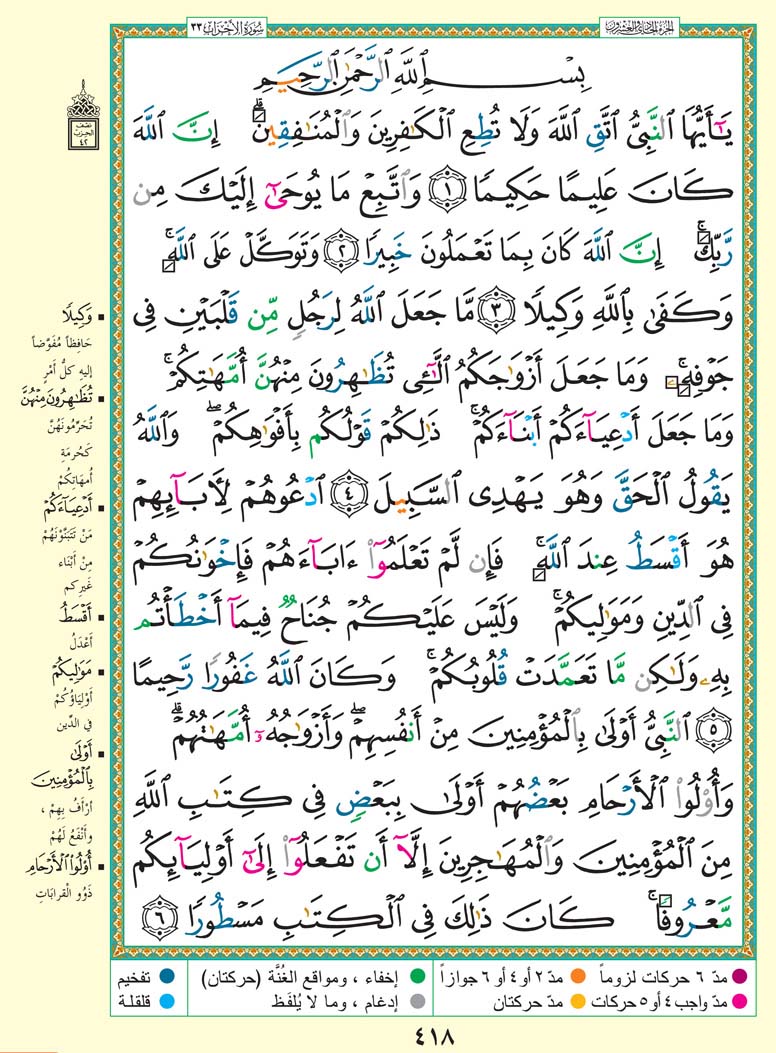 سُورَةُ الأَحْزَابِ ٣٣
الجُزْءُ الحَادِي وَالعِشْرُونَ
بِسْمِ ٱللَّهِ ٱلرَّحْمَٰنِ ٱلرَّحِيمِ
يَٰٓأَيُّهَا ٱلنَّبِىُّ ٱتَّقِ ٱللَّهَ وَلَا تُطِعِ ٱلْكَٰفِرِينَ وَٱلْمُنَٰفِقِينَ ۗ إِنَّ ٱللَّهَ
كَانَ عَلِيمًا حَكِيمًا ١ وَٱتَّبِعْ مَا يُوحَىٰٓ إِلَيْكَ مِن
رَّبِّكَ ۚ إِنَّ ٱللَّهَ كَانَ بِمَا تَعْمَلُونَ خَبِيرًا ٢ وَتَوَكَّلْ عَلَى ٱللَّهِ ۚ
وَكَفَىٰ بِٱللَّهِ وَكِيلًا ٣ مَّا جَعَلَ ٱللَّهُ لِرَجُلٍ مِّن قَلْبَيْنِ فِى
جَوْفِهِۦ ۚ وَمَا جَعَلَ أَزْوَٰجَكُمُ ٱلَّٰٓـِٔى تُظَٰهِرُونَ مِنْهُنَّ أُمَّهَٰتِكُمْ ۚ
وَمَا جَعَلَ أَدْعِيَآءَكُمْ أَبْنَآءَكُمْ ۚ ذَٰلِكُمْ قَوْلُكُم بِأَفْوَٰهِكُمْ ۖ وَٱللَّهُ
يَقُولُ ٱلْحَقَّ وَهُوَ يَهْدِى ٱلسَّبِيلَ ٤ ٱدْعُوهُمْ لِءَابَآئِهِمْ
هُوَ أَقْسَطُ عِندَ ٱللَّهِ ۚ فَإِن لَّمْ تَعْلَمُوٓا۟ ءَابَآءَهُمْ فَإِخْوَٰنُكُمْ
فِى ٱلدِّينِ وَمَوَٰلِيكُمْ ۚ وَلَيْسَ عَلَيْكُمْ جُنَاحٌ فِيمَآ أَخْطَأْتُم
بِهِۦ وَلَٰكِن مَّا تَعَمَّدَتْ قُلُوبُكُمْ ۚ وَكَانَ ٱللَّهُ غَفُورًا رَّحِيمًا
٥ ٱلنَّبِىُّ أَوْلَىٰ بِٱلْمُؤْمِنِينَ مِنْ أَنفُسِهِمْ ۖ وَأَزْوَٰجُهُۥٓ أُمَّهَٰتُهُمْ ۗ
وَأُو۟لُوا۟ ٱلْأَرْحَامِ بَعْضُهُمْ أَوْلَىٰ بِبَعْضٍ فِى كِتَٰبِ ٱللَّهِ
مِنَ ٱلْمُؤْمِنِينَ وَٱلْمُهَٰجِرِينَ إِلَّآ أَن تَفْعَلُوٓا۟ إِلَىٰٓ أَوْلِيَآئِكُم
مَّعْرُوفًا ۚ كَانَ ذَٰلِكَ فِى ٱلْكِتَٰبِ مَسْطُورًا ٦
نصف
الحزب
٤٢
وَكِيلًا
حَافِظاً مُفَوَّضاً
إليهِ كلُّ أَمْرٍ
تُظَٰهِرُونَ مِنْهُنَّ
تُحَرِّمُونَهُنَّ
كَحُرمَةِ
أُمهَاتِكُمْ
أَدْعِيَآءَكُمْ
مَنْ تَتَبَنَّوْنَهُمْ
مِنْ أَبْنَاء
غَيركم
أَقْسَطُ
أَعْدَلُ
مَوَٰلِيكُمْ
أَوْلِيَاؤُكُمْ
في الدِّين
أَوْلَىٰ
بِٱلْمُؤْمِنِينَ
أرْأَفُ بِهِمْ ،
وأَنْفَعُ لَهُمْ
أُو۟لُوا۟ ٱلْأَرْحَامِ
ذَوُو القَرابَاتِ
مدّ ٦ حركات لزوماً
مدّ ٢ أو ٤ أو ٦ جوازاً
إخفاء ، ومواقع الغُنَّة (حركتان)
تفخيم
مدّ واجب ٤ أو ٥ حركات
مدّ حركتان
إدغام ، وما لا يُلفَظ
قلقلة
٤١٨